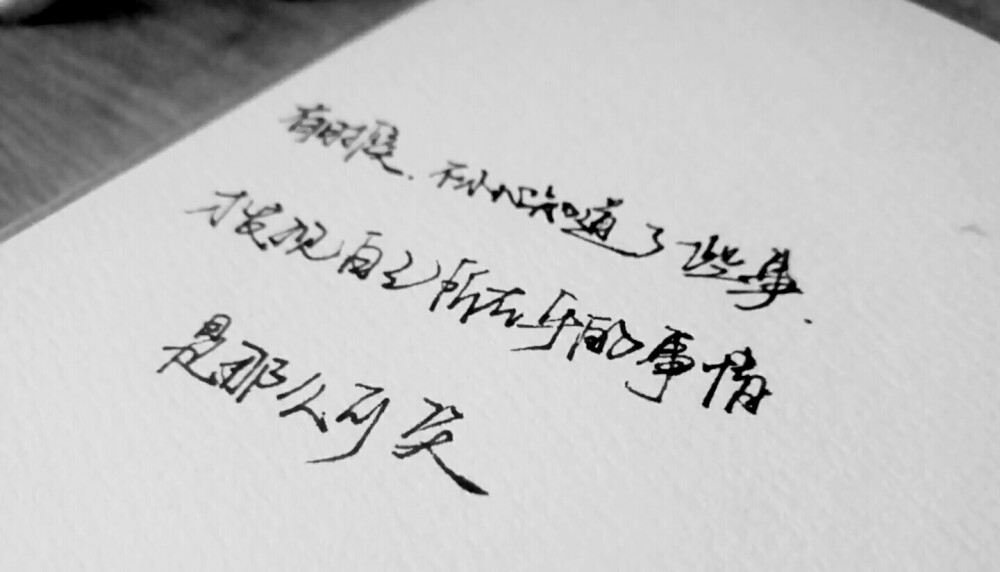 有时候.不小心知道了一些事.
才发现自己所在乎的事情
是那么可笑